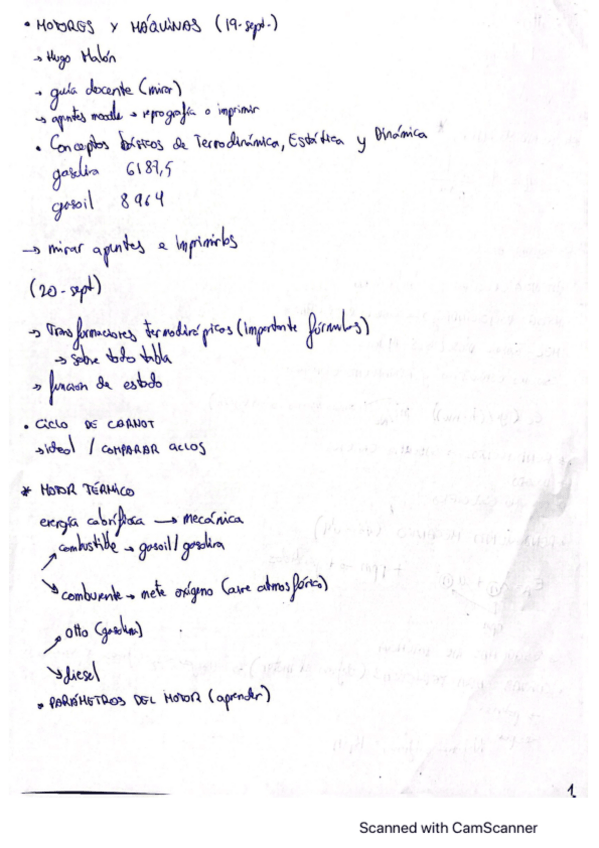 • MOTORES Y MÁQUINAS (19-sept.)
→ Hugo Malón
→ guía docente (mirar)
→ apuntes moodle → reprografía o imprimir
• Conceptos básicos de Termodinámica, Estática y Dinámica
gasolina 6187,5
gasoil 8964
→ mirar apuntes e imprimirlos
(20-sept)
→ Transformaciones termodinámicas (importante fórmulas)
→ sobre todo tabla
→ función de estado
• CICLO DE CARNOT
→ ideal / COMPARAR CICLOS
* MOTOR TÉRMICO
energía calorífica → mecánica
combustible → gasoil/gasolina
comburente → mete oxígeno (aire atmosférico)
Otto (gasolina)
diesel
* PARÁMETROS DEL MOTOR (aprender)
1
Scanned with CamScanner